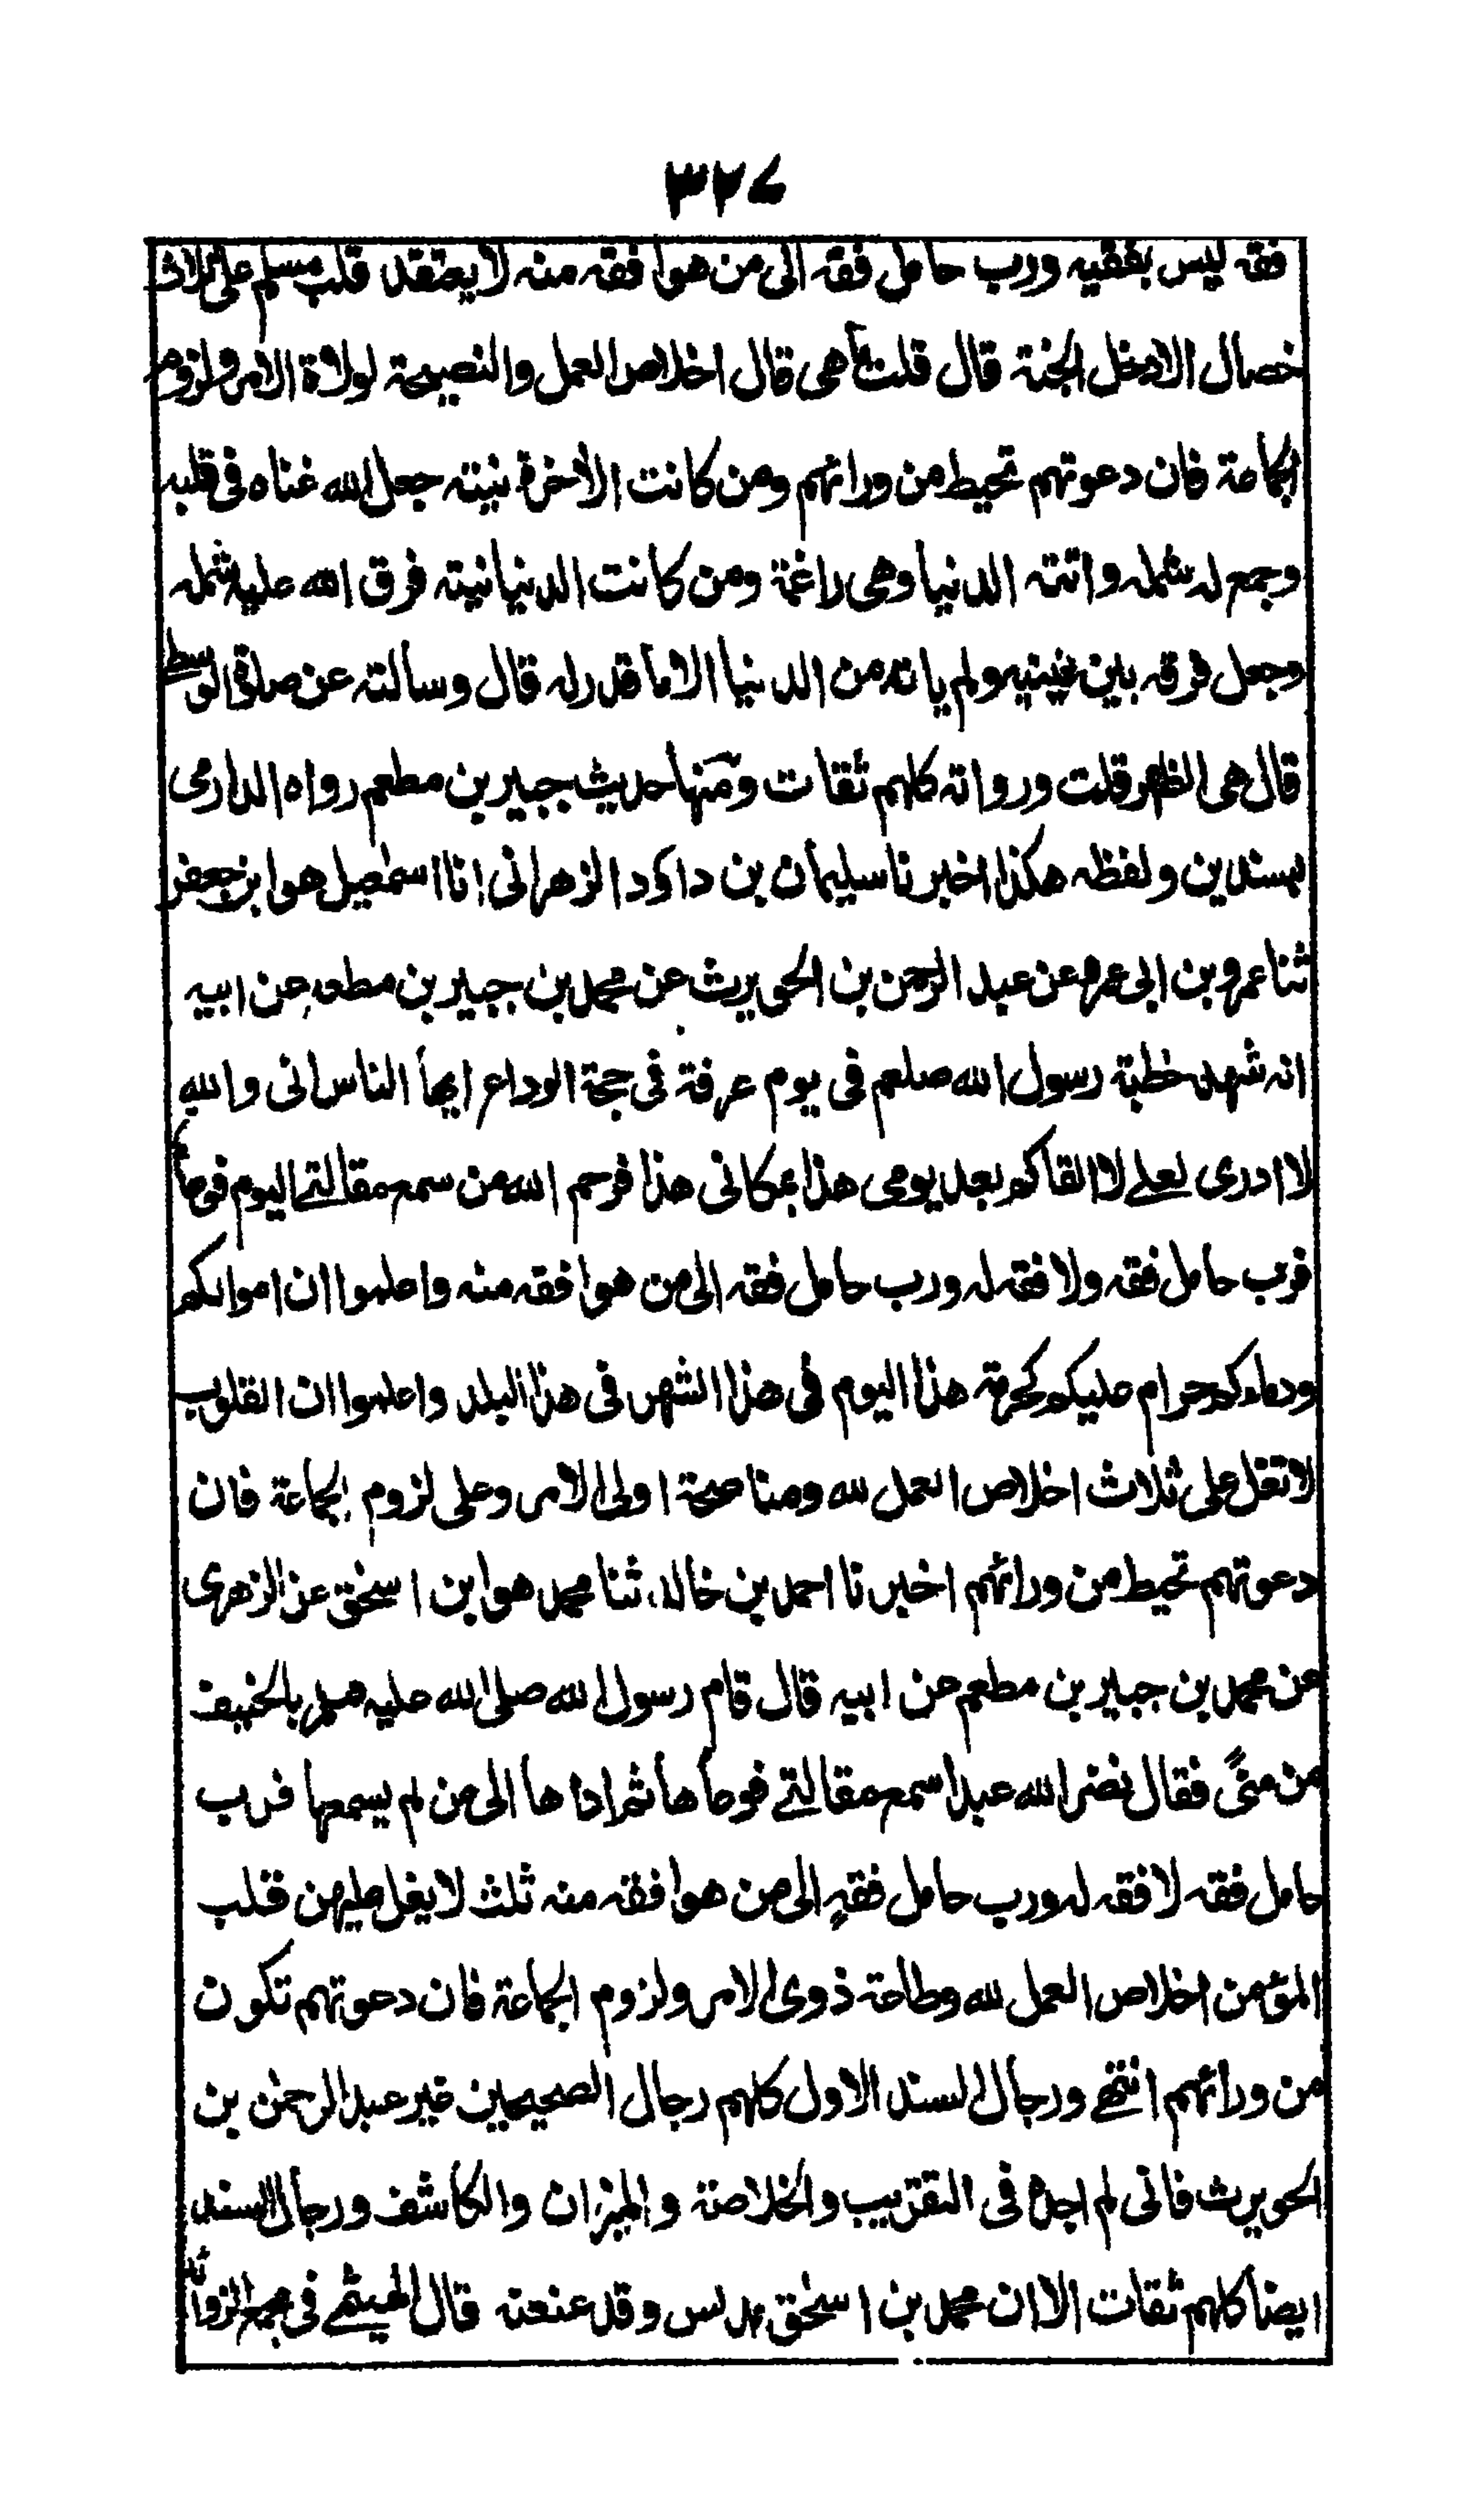 ٣٢٤
فقه ليس بفقيه ورب حامل فقه الى من هو افقه منه لا يعتقد قلب مسلم على ثلاث
خصال الا دخل الجنة قال قلت ما هى قال اخلاص العمل والنصيحة لولاة الامر ولزوم
الجماعة فان دعوتهم تحيط من ورائهم ومن كانت الاخرة نيته جعل الله غناه فى قلبه
وجمع له شمله واتته الدنيا وهى راغمة ومن كانت الدنيا نيته فرق الله عليه شمله
وجعل فقره بين عينيه ولم ياته من الدنيا الا ما قدر له قال وسالته عن صلوة الوسطى
قال هى الظهر قلت ورواته كلهم ثقات ومنها حديث جبير بن مطعم رواه الدارمى
بسندين ولفظه هكذا اخبرنا سليمان بن داؤد الزهرانى انا اسمعيل هو ابن جعفر
ثنا عمرو بن ابى عمرو عن عبد الرحمن بن الحويرث عن محمد بن جبير بن مطعم عن ابيه
انه شهد خطبة رسول الله صلعم فى يوم عرفة فى حجة الوداع ايها الناس انى والله
لا ادرى لعلى لا القاكم بعد يومى هذا بمكانى هذا فرحم الله من سمع مقالتى اليوم فوعاها
فرب حامل فقه ولا فقه له ورب حامل فقه الى من هو افقه منه واعلموا ان اموالكم
ودماءكم حرام عليكم كحرمة هذا اليوم فى هذا الشهر فى هذا البلد واعلموا ان القلوب
لا تغل على ثلاث اخلاص العمل لله ومناصحة اولى الامر وعلى لزوم الجماعة فان
دعوتهم تحيط من ورائهم اخبرنا احمد بن خالد ثنا محمد هو ابن اسحق عن الزهرى
عن محمد بن جبير بن مطعم عن ابيه قال قام رسول الله صلى الله عليه وسلم بالخيف
من منىً فقال نضر الله عبدا سمع مقالتى فوعاها ثم اداها الى من لم يسمعها فرب
حامل فقه لا فقه له ورب حامل فقهٍ الى من هو افقه منه ثلث لا يغل عليهن قلب
المؤمن اخلاص العمل لله وطاعة ذوى الامر ولزوم الجماعة فان دعوتهم تكون
من ورائهم انتهى ورجال السند الاول كلهم رجال الصحيحين غير عبد الرحمن بن
الحويرث فانى لم اجده فى التقريب والخلاصة والميزان والكاشف ورجال السند الثانى
ايضا كلهم ثقات الا ان محمد بن اسحق مدلس وقد عنعنه قال الهيثمى فى مجمع الزوائد